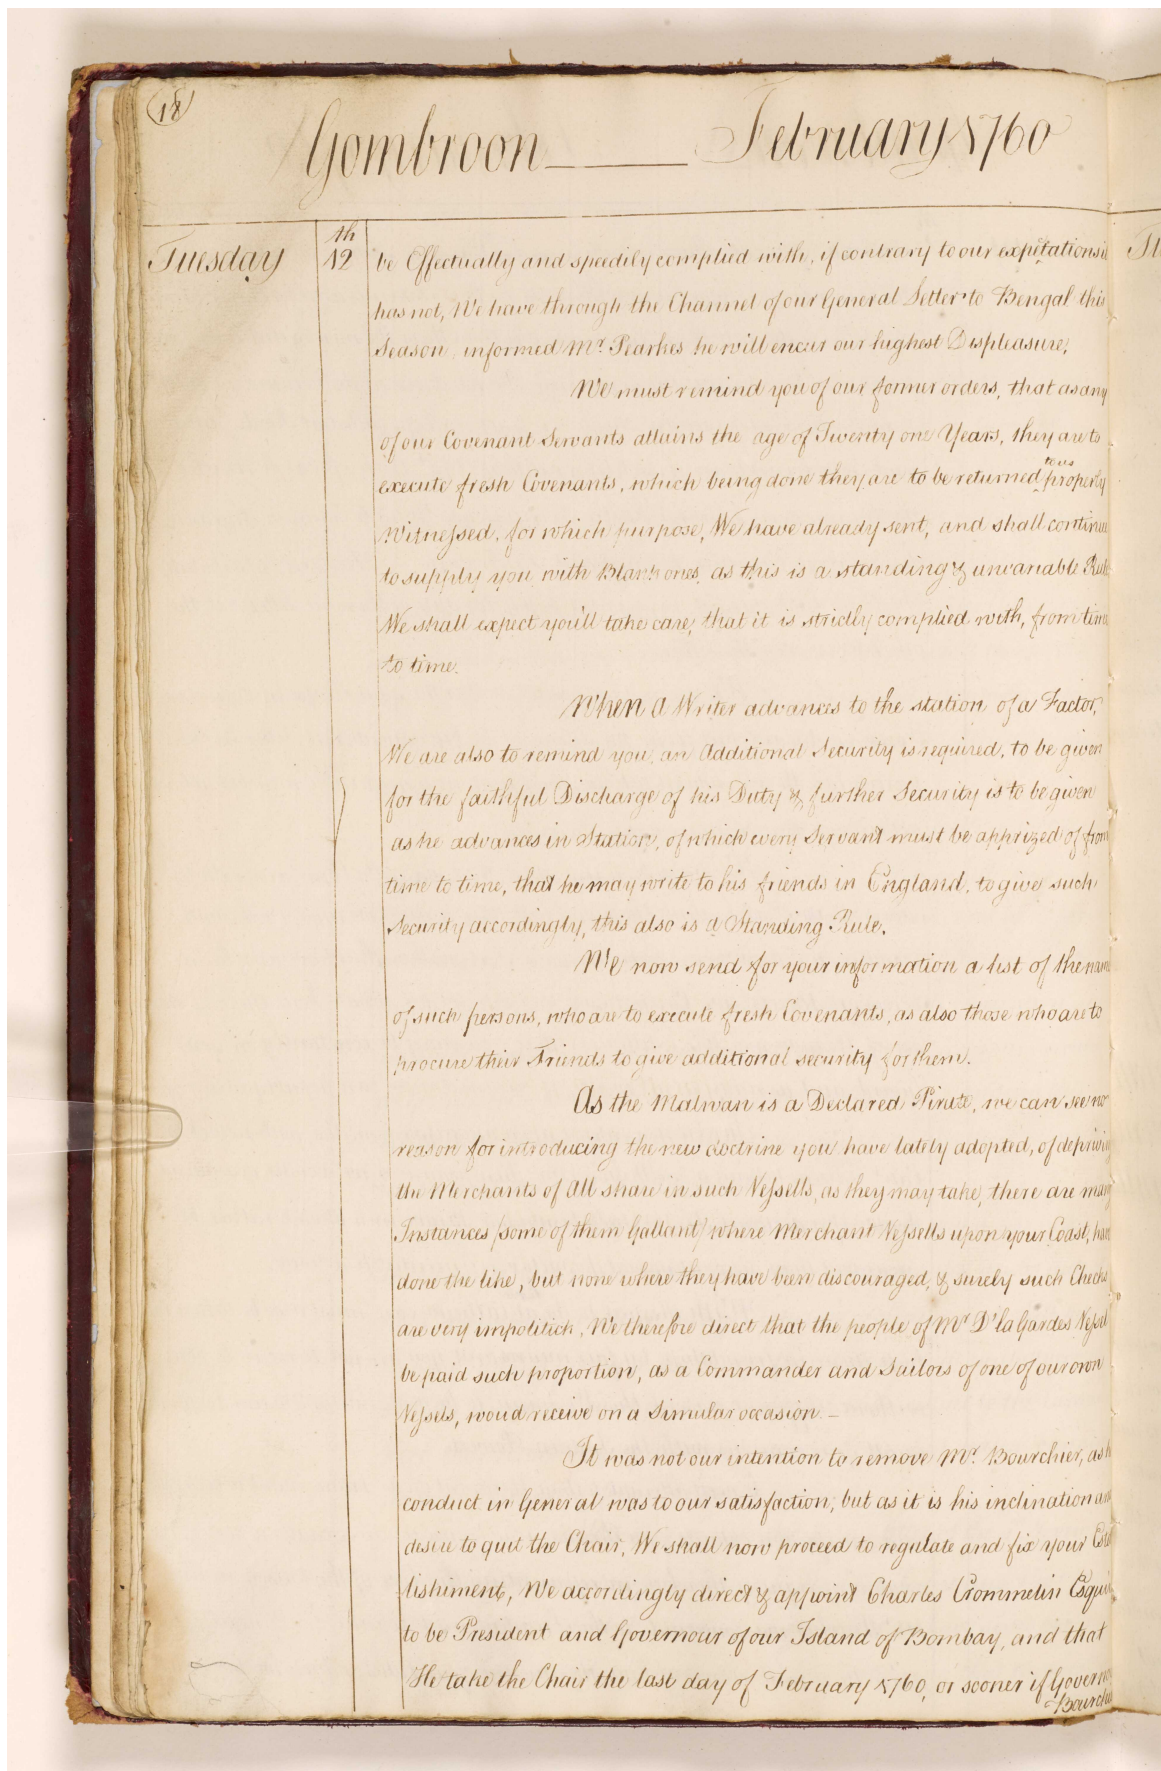 18
Gombroon February 1760
Tuesday 12th be Effectually and speedily complied with, if contrary to our expetations it
has not, We have through the Channel of our General Letter to Bengal this
Season, informed Mr. Pearkes he will encur our highest Displeasure,
We must remind you of our former orders, that as any
of our Covenant Servants attains the age of Twenty one Years, they are to
execute fresh Covenants, which being done they are to be returned to us properly
Witnessed, for which purpose, We have already sent, and shall continue
to supply you with Blank ones, as this is a standing & unvariable Rule
We shall expect you'll take care, that it is strictly complied with, from time
to time.
When a Writer advances to the station of a Factor,
We are also to remind you, an Additional Security is required, to be given
for the faithful Discharge of his Duty & further Security is to be given
as he advances in Station, of which every Servant must be apprized of from
time to time, that he may write to his friends in England, to give such
Security accordingly, this also is a Standing Rule.
We now send for your information a list of the name
of such persons, who are to execute fresh Covenants, as also those who are to
procure their Friends to give additional security for them.
As the Malwan is a Declared Pirate, we can see no
reason for introducing the new doctrine you have lately adopted, of depriving
the Merchants of all share in such Vessells, as they may take, there are many
Instances (some of them Gallant) where Merchant Vessells upon your Coast, have
done the like, but none where they have been discouraged, & surely such Checks
are very impolitick, We therefore direct that the people of Mr D'la Gardes Vessel
be paid such proportion, as a Commander and Sailors of one of our own
Vessels, woud receive on a Simular occasion.—
It was not our intention to remove Mr. Bourchier, as h
conduct in General was to our satisfaction, but as it is his inclination and
desire to quit the Chair, We shall now proceed to regulate and fix your Estab
lishiment, We accordingly direct & appoint Charles Crommelin Esquire
to be President and Governour of our Island of Bombay, and that
He take the Chair the last day of February 1760, or sooner if Governor
Bourchier